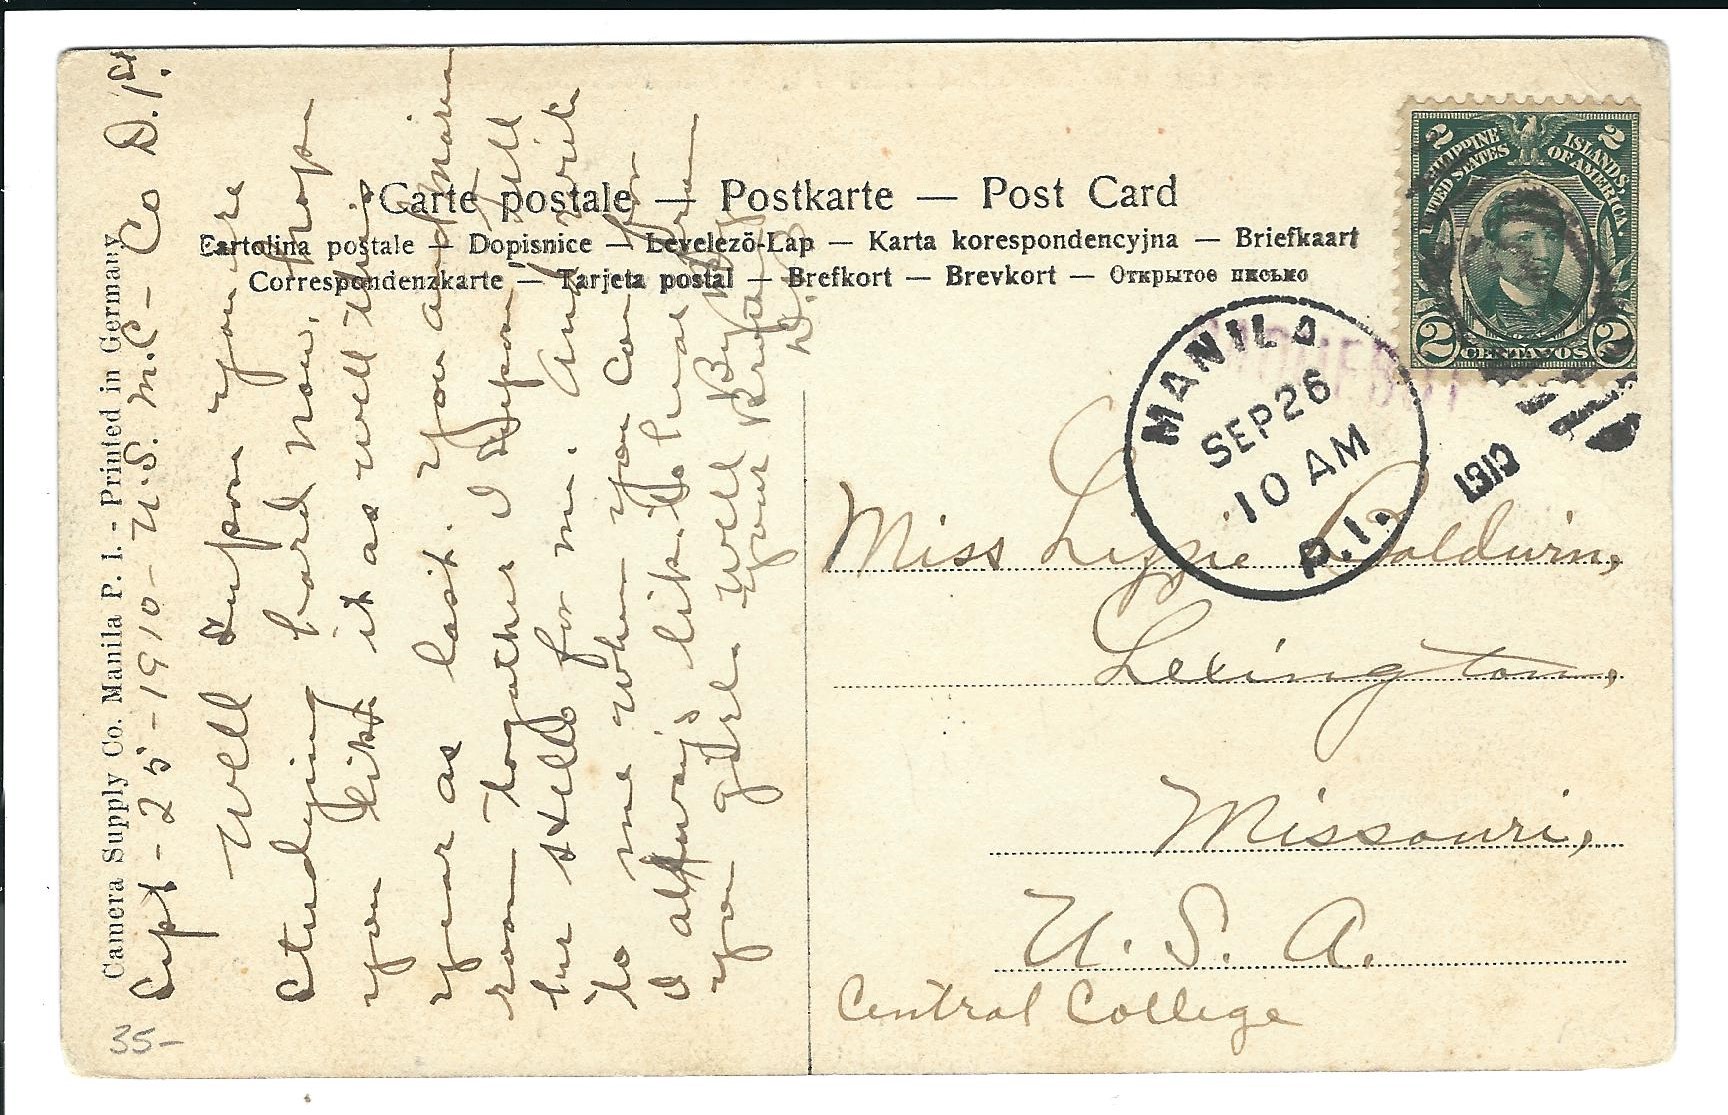 Carte postale — Postkarte — Post Card
Cartolina postale — Dopisnice — Levelező-Lap — Karta korespondencyjna — Briefkaart
Correspondenzkarte — Tarjeta postal — Brefkort — Brevkort — Открытое письмо
Camera Supply Co. Manila P. I. - Printed in Germany
Sept - 25 - 1910 - U.S. M.C - Co D. 1st.
Well I supose you are
studying hard now, hope
you like it as well this
year as last. You and Marie
room togather I supose. Tell
her hello for me. And write
to me when you can for
I allways like to hear from
you girls. Well By By
your
35-
PHILIPPINE ISLANDS,
UNITED STATES OF AMERICA.
2 2
2 CENTAVOS 2
MANILA
SEP 26
10 AM
P.I.
1910
Miss Lizzie Baldwin,
Lexington,
Missouri,
U. S. A.
Central College